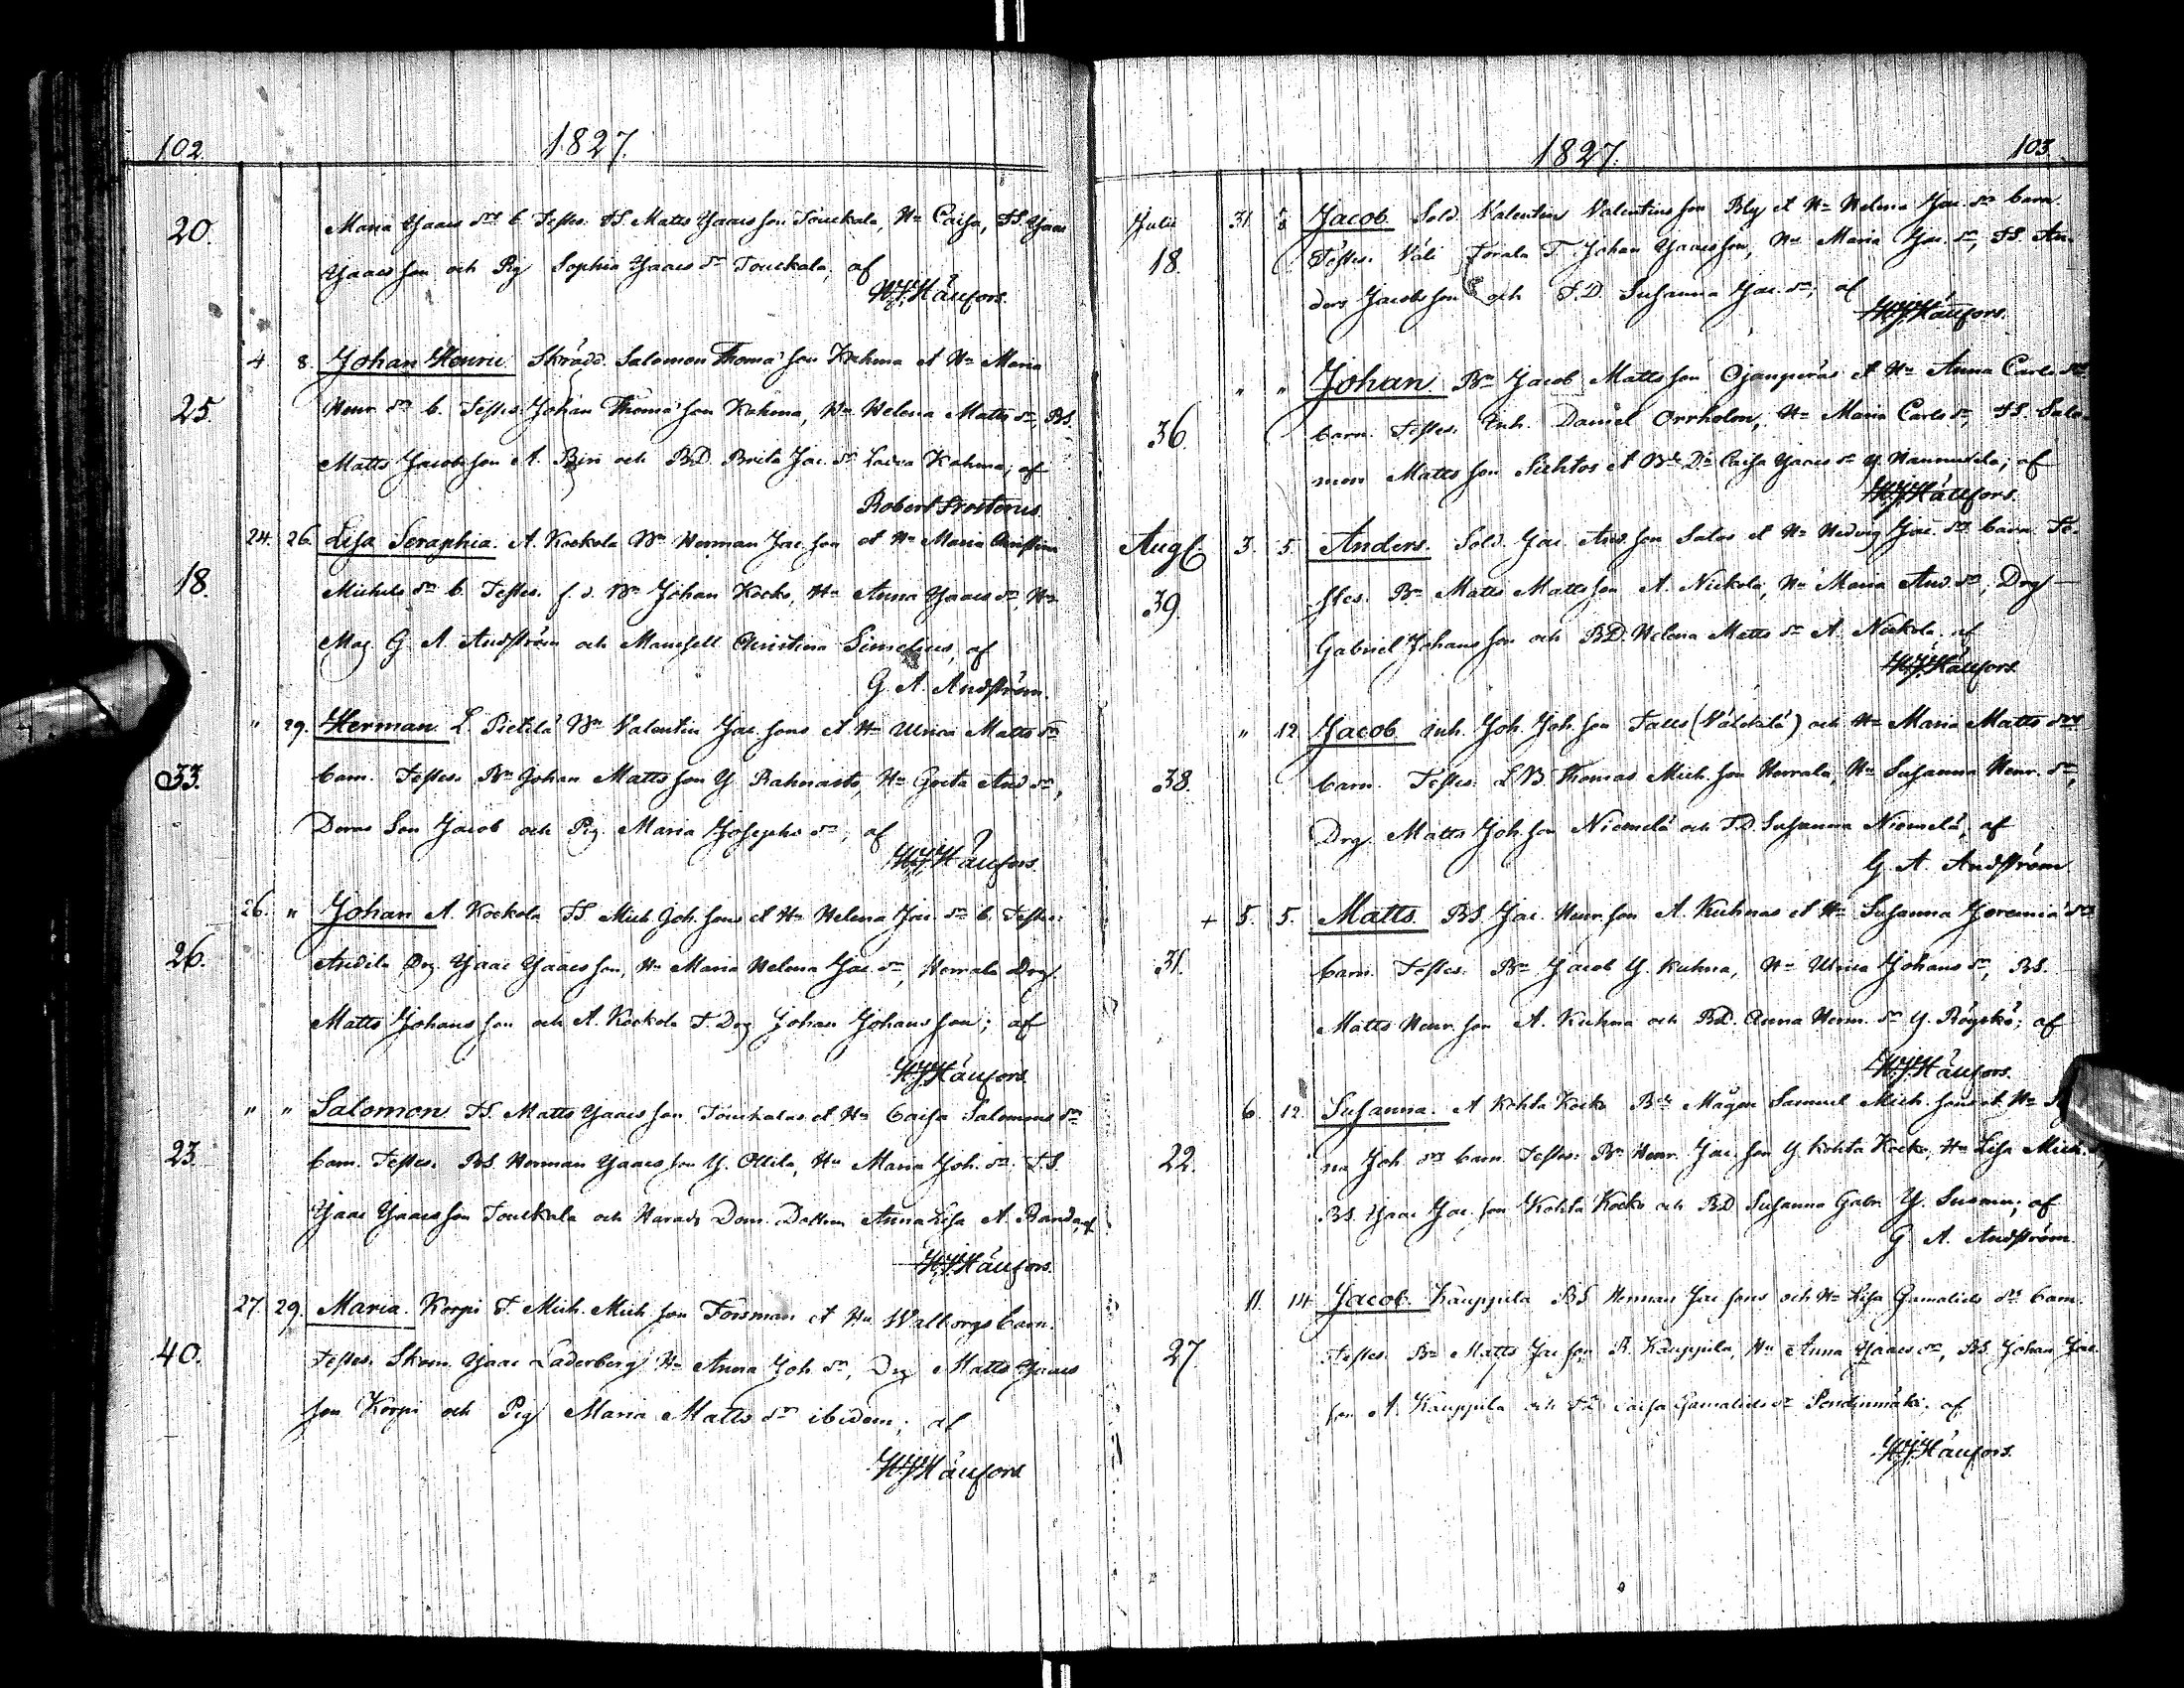 102. 1827.
20. Maria Isaacs dr b. Testes. TS. Matts Isaacs son Jouckala, Hu Caisa, TS. Isaac
Isaacs son och Pig Sophia Isaacs dr Jouckala, af
H.J. Håufors.
4. 8. Johan Henric Skrädd. Salomon Thomæ son Kahma et Hu Maria
25. Henr. dr b. Testes. Johan Thomæ son Kahma, Hu Helena Matts dr, BS.
Matts Jacobs son A. och BD. Brita Jac. dr Kahma; af
Robert Frosterus.
24. 26. Lisa Seraphia. A. Kockola Bn Herman Jac. son et Hu Maria Christina
18. Michels dr b. Testes. f. d. Bn Johan Kocko, Hu Anna Isaacs dr, Hr
Mag G. A. Andström och Mamsell Christina Simelius, af
G. A. Andström.
" 29. Herman L. Pietilä Bn Valentin Jac. sons et Hu Ulrica Matts dr
33. barn. Testes. Bn Johan Matts son Y. Rahnasto, Hu Greta And dr,
Deras Son Jacob och Pig. Maria Josephs dr, af
H.J. Håufors.
26. " Johan A. Kockola TS. Mich Joh. sons et Hu Helena Jac dr b. Testes.
26. Andila Drg. Isaac Isaacs son, Hu Maria Helena Jac. dr, Herrala Drg.
Matts Johans son och A. Kockola T. Drg Johan Johans son; af
H.J. Håufors
" " Salomon TS. Matts Isaacs son Jouckalas et Hu Caisa Salomons dr
23. barn. Testes. BS. Herman Isaacs son Y. Ollila, Hu Maria Joh. dr, TS.
Isaac Isaacs son Jouckala och Härads Dom. Dottren Anna Lisa A. Randa, af
H.J. Håufors.
27. 29. Maria. Korpi T. Mich. Mich. son Forsman et Hu Walborgs barn.
40. Testes. Skom. Isaac Läderberg, Hu Anna Joh. dr, Drg Matts Isaacs
son Korpi och Pig Maria Matts dr ibidem; af
H.J. Håufors
1827. 103.
Julii 31. 5/8 Jacob. Sold. Valentin Valentins son Bly et Hu Helena Jac. dr barn.
18. Testes. Väli Torala T. Johan Isaacs son, Hu Maria Jac. dr, TS. An-
ders Jacobs son och T.D. Susanna Jac. dr, af
H.J. Håufors.
" " Johan. Bn Jacob Matts son Ojanperäs et Hu Anna Carls dr
36. barn. Testes. Inh. Daniel Orrholm, Hu Maria Carls dr, TS. Salo-
mon Matts son et Caisa Isaacs dr Y. Hannuksela; af
H.J. Håufors.
Aug. 3. 5. Anders. Sold. Jac. And. son Salos et Hu Hedvig Jac. dr barn. Te-
39. stes. Bn Matts Matts son A. Nickola, Hu Maria And. dr, Drg
Gabriel Johans son och BD. Helena Matts dr A. Nickola, af
H.J. Håufors.
" 12. Jacob Inh. Joh. Joh. son och Hu Maria Matts drs
38. barn. Testes. LB. Thomas Mich. son Herrala, Hu Susanna Henr. dr,
Drg. Matts Joh. son Niemelä och T.D. Susanna Niemelä, af
G. A. Andström
+ 5. 5. Matts. BS. Jac. Henr. son A. Kuhnas et Hu Susanna Jeremiæ dr
31. barn. Testes. Bn Jacob Y. Kuhna, Hu Ulrica Johans dr, BS.
Matts Henr. son A. Kuhna och BD. Anna Herm. dr Y. Röyskö; af
H.J. Håufors.
6. 12. Susanna. A Kohta Kocko Mågen Samuel Mich. sons et Hu
22. na Joh. drs barn. Testes. Bn Henr. Jac. son Y. Kohta Kocko, Hu Lisa Mich.
BS. Isaac Jac. son Kohta Kocko och BD Susanna Gabr. Y. af
G. A. Andström.
11. 14. Jacob. Kauppila BS Herman Jac sons och Hu Lisa Gamaliels dr barn.
27. Testes. Bn Matts Jac son R. Kauppila, Hu Anna Isaacs dr, BS. Johan Jac.
son A. Kauppila och Caisa Gamaliels dr af
H.J. Håufors.